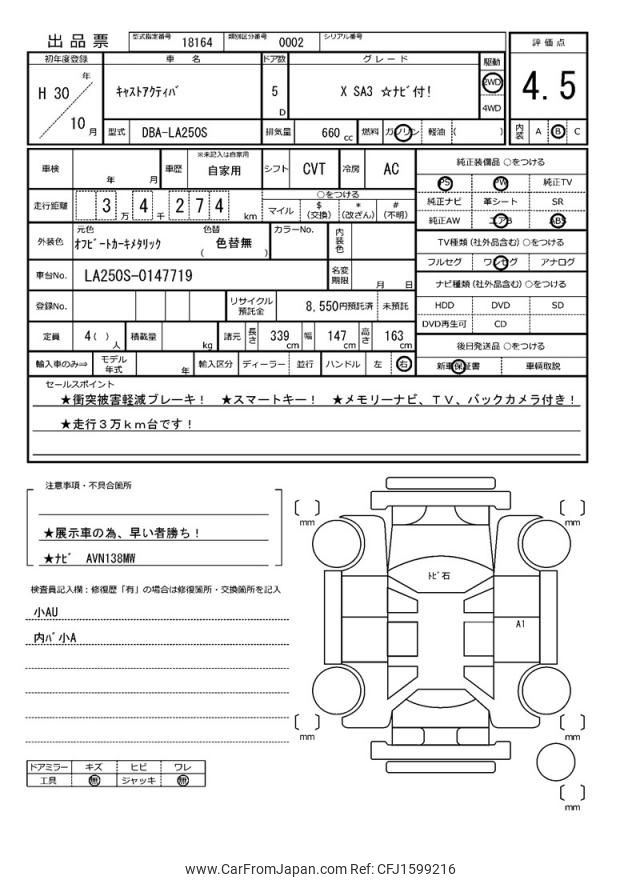 出品票
型式指定番号 18164 類別区分番号 0002 シリアル番号
評価点
4.5
内装 A B C
初年度登録 車名 ドア数 グレード 駆動
H 30 年 10 月
ｷｬｽﾄｱｸﾃｨﾊﾞ 5 D X SA3 ☆ﾅﾋﾞ付! 2WD 4WD
型式 DBA-LA250S 排気量 660 cc 燃料 ガソリン 軽油 ( )
車検 年 月 車歴 ※未記入は自家用 自家用 シフト CVT 冷房 AC
走行距離 3 万 4 千 2 7 4 km
○をつける
マイル $(交換) *(改ざん) #(不明)
外装色 元色 ｵﾌﾋﾞｰﾄｶｰｷﾒﾀﾘｯｸ 色替 ( 色替無 ) カラーNo. 内装色
車台No. LA250S-0147719 名変期限 月 日
登録No. リサイクル預託金 8,550円預託済 未預託
定員 4( ) 人 積載量 kg 諸元 長さ 339 cm 幅 147 cm 高さ 163 cm
輸入車のみ⇒ モデル年式 年 輸入区分 ディーラー 並行 ハンドル 左 右
純正装備品 ○をつける
PS PW 純正TV
純正ナビ 革シート SR
純正AW エアB ABS
TV種類(社外品含む) ○をつける
フルセグ ワンセグ アナログ
ナビ種類(社外品含む) ○をつける
HDD DVD SD
DVD再生可 CD
後日発送品 ○をつける
新車保証書 車輌取説
セールスポイント
★衝突被害軽減ブレーキ! ★スマートキー! ★メモリーナビ、TV、バックカメラ付き!
★走行3万km台です!
注意事項・不具合箇所
★展示車の為、早い者勝ち!
★ﾅﾋﾞ AVN138MW
検査員記入欄:修復歴「有」の場合は修復箇所・交換箇所を記入
小AU
内ﾊﾞ小A
ドアミラー キズ ヒビ ワレ
工具 無 ジャッキ 無
mm
mm
ﾄﾋﾞ石
A1
mm
mm
mm
www.CarFromJapan.com Ref: CFJ1599216